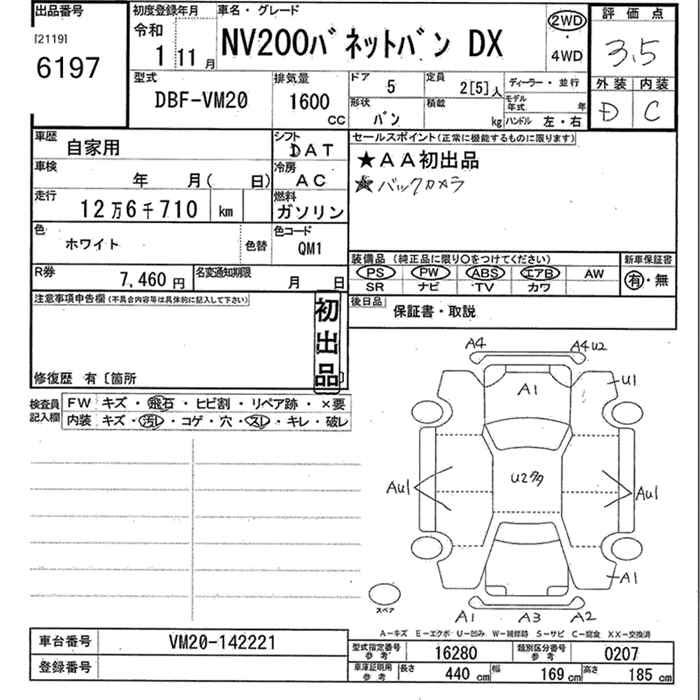 出品番号
[2119]
6197
初度登録年月
令和
1 11 月
車名・グレード
NV200バネットバン DX
2WD
4WD
評価点
3.5
外装 内装
D C
型式
DBF-VM20
排気量
1600
CC
ドア
5
定員
2[5]人
ディーラー・並行
形状
バン
積載
kg
モデル年式
年
ハンドル 左・右
車歴
自家用
シフト
DAT
車検
年 月( 日)
冷房
AC
走行
12万6千710 km
燃料
ガソリン
色
ホワイト
色替
色コード
QM1
R券
7,460 円
名変通知期限
月 日
セールスポイント(正常に機能するものに限ります)
★AA初出品
★バックカメラ
装備品 (純正品に限り○をつけてください)
新車保証書
PS PW ABS エアB AW
SR ナビ TV カワ
有・無
後日品
保証書・取説
注意事項申告欄(不具合内容等は具体的に記入して下さい)
初出品
修復歴 有〔箇所 〕
検査員記入欄
FW キズ・飛石・ヒビ割・リペア跡・×要
内装 キズ・汚レ・コゲ・穴・スレ・キレ・破レ
A4
A4U2
A1
U1
U2多
AU1
AU1
A1
スペア
A1 A3 A2
A-キズ E-エクボ U-凹み W-補修跡 S-サビ C-腐食 XX-交換済
車台番号
VM20-142221
登録番号
型式指定番号参考
16280
類別区分番号参考
0207
車庫証明用参考
長さ 440 cm
幅 169 cm
高さ 185 cm